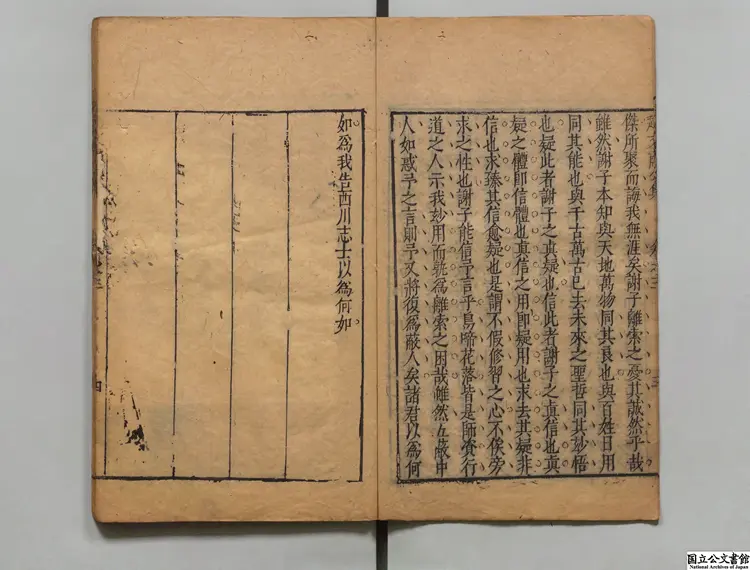 傑所聚而誨我無涯矣謝子離索之憂其誠然乎哉
雖然謝子本知與天地萬物同其良也與百姓日用
同其能也與千古萬古已去未來之聖哲同其妙悟
也疑此者謝子之真疑也信此者謝子之真信也真
疑之體即信體也真信之用即疑用也求去其疑非
信也求臻其信愈疑也是謂不假修習之心不俟旁
求之性也謝子能信予言乎鳥啼花落皆是師資行
道之人示我妙用而孰爲離索之困哉雖然五蔽中
人如惑予之言則予又將復爲蔽人矣諸君以爲何
如爲我告西川志士以爲何如
国立公文書館
National Archives of Japan